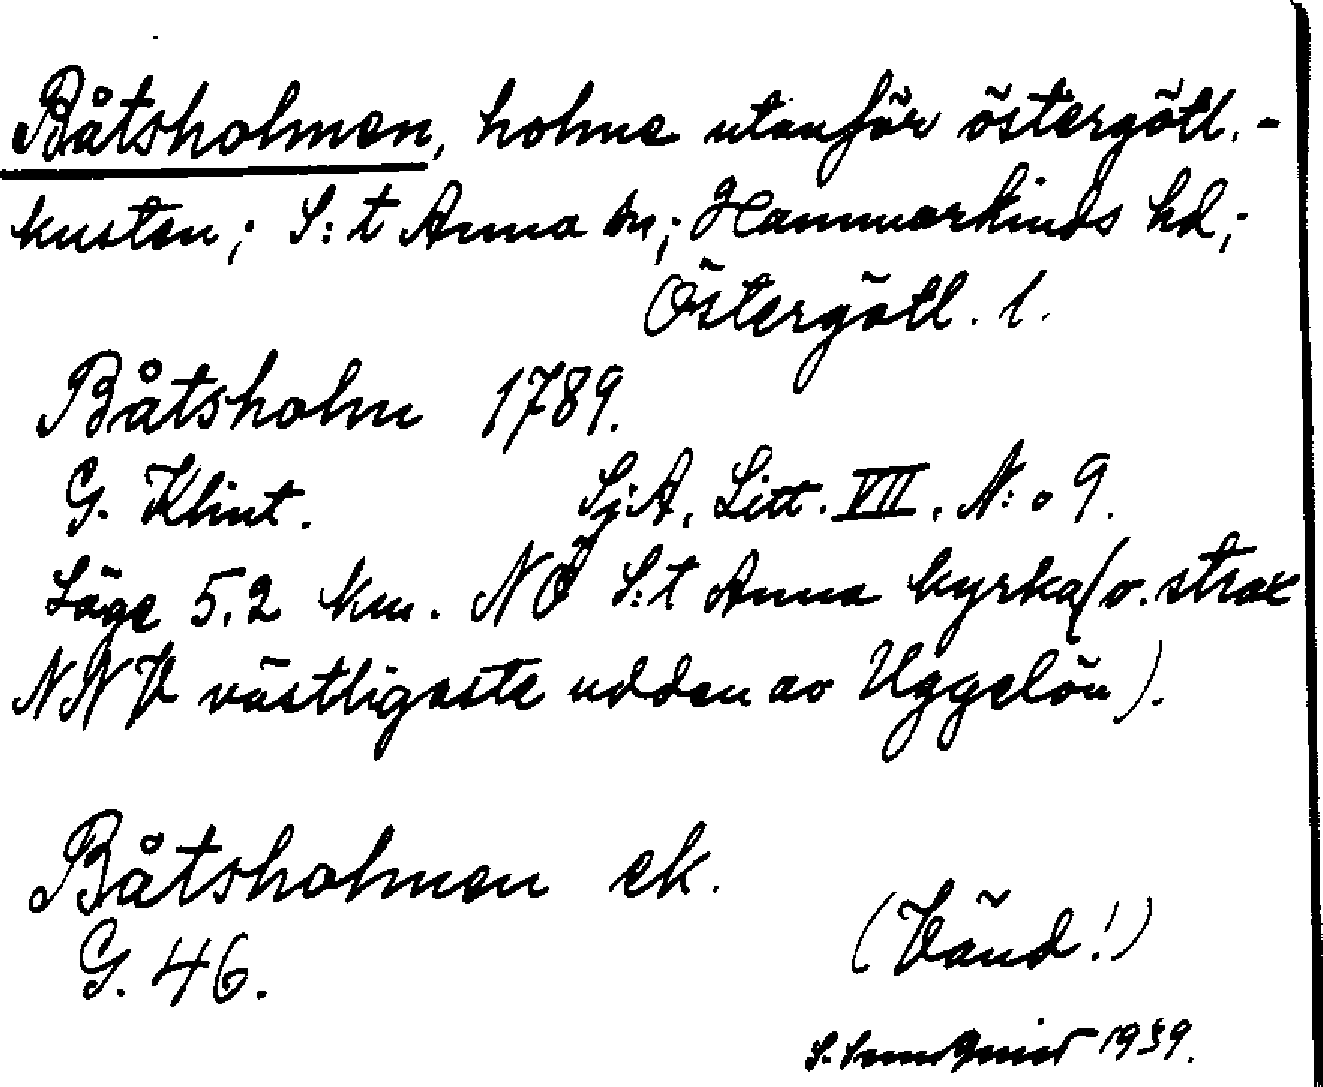 Båtsholmen, holme utanför östergötl.-
kusten; S:t Anna sn; Hammarkinds hd;
Östergötl. l.
Båtsholm 1789.
G. Klint. Sj.A. Litt. VII. N:o 9.
Läge 5.2 km. NÖ S:t Anna kyrka (o. strax
NNV västligaste udden av Uggelön).
Båtsholmen ek.
G. 46.
(Vänd!)
1939.